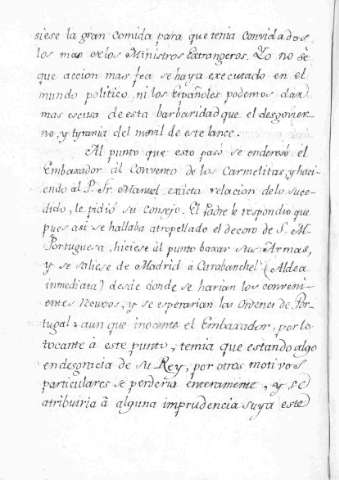 siese la gran comida para que tenia convidados
los mas de los Ministros Estrangeros. Yo no sè
que accion mas fea se haya executado en el
mundo politico, ni los Españoles podemos dar
mas escusa de esta barbaridad que el desgovier-
no, y tyrania del movil de este lance.
Al punto que esto pasó se enderesó el
Embaxador al Convento de los Carmelitas, y haci-
endo al P. Fr. Manuel exacta relacion de lo suce-
dido, le pidiò su consejo. El Padre le respondio que
pues asi se hallaba atropellado el decoro de S. M.
Portuguesa, hiciese àl punto baxar sus Armas,
y se saliese de Madrid à Carabanchel (Aldea
inmediata) desde donde se harian los conveni-
entes Recursos, y se esperarian las Ordenes de Por-
tugal, aun que inocente el Embaxador, por lo
tocante à este punto, temia que estando algo
en desgracia de su Rey, por otros motivos
particulares se perderia enteramente, y se
atribuiria à alguna imprudencia suya este